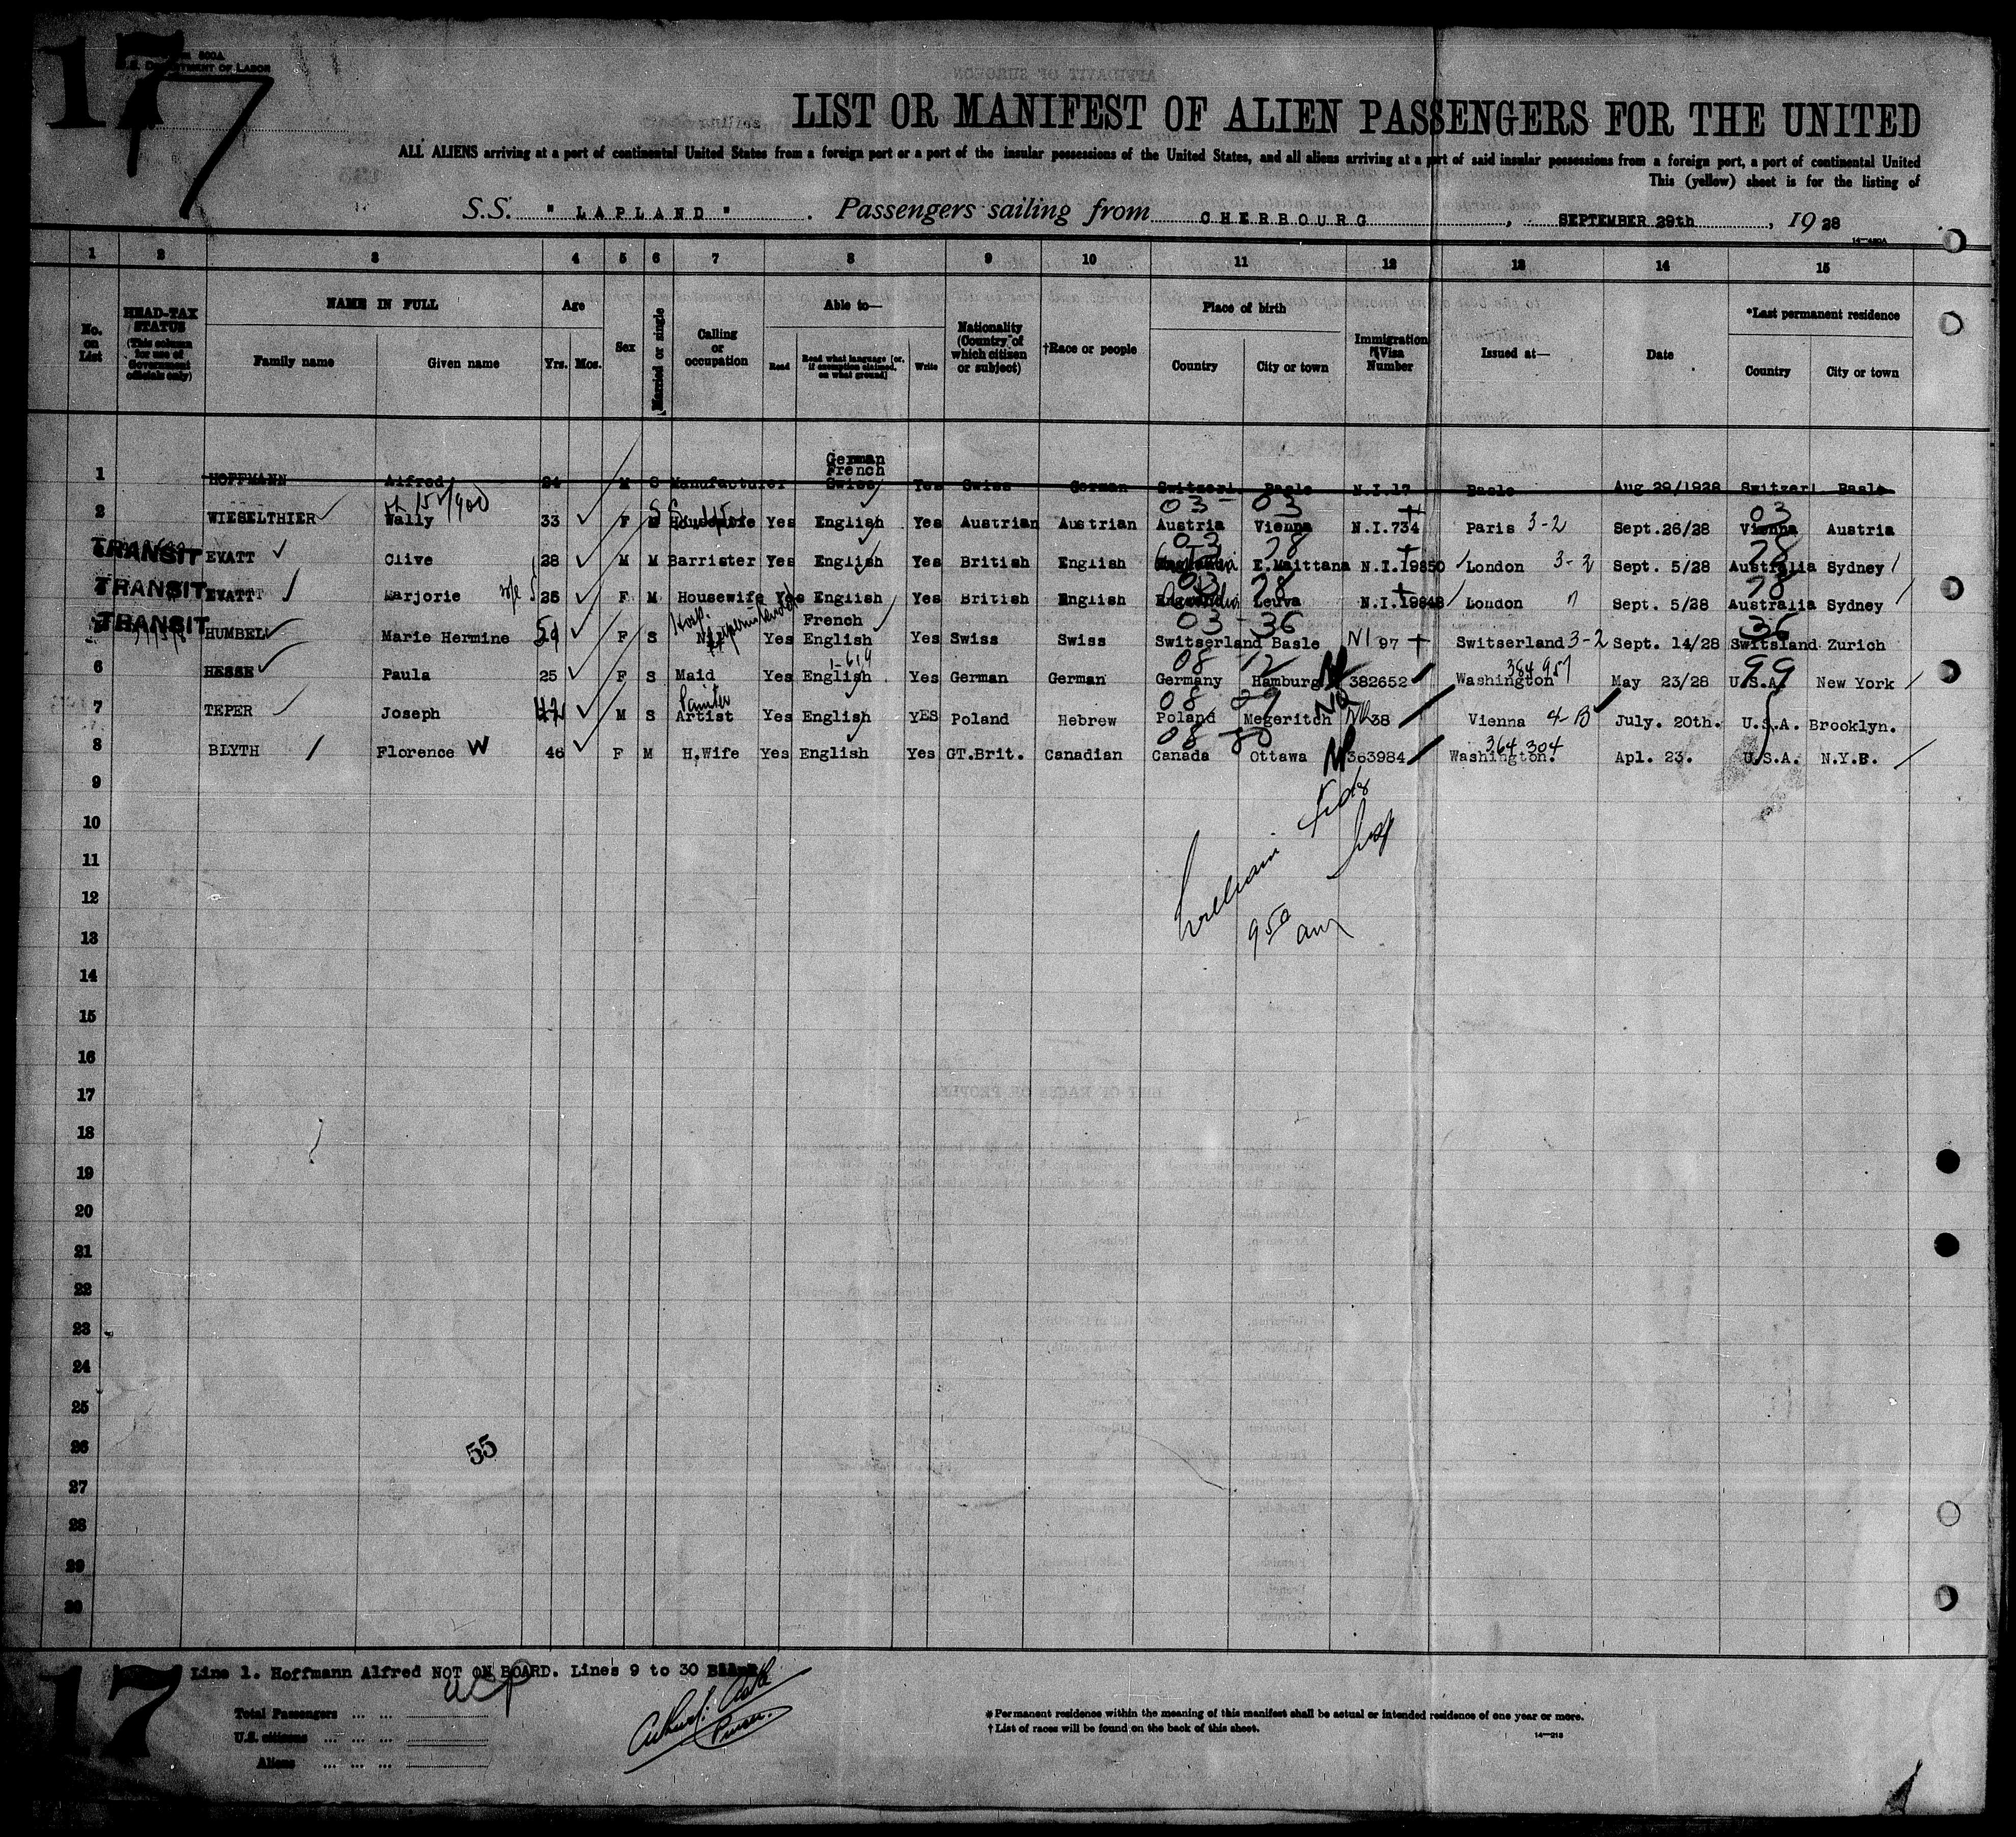 17
Form 600A
U.S. DEPARTMENT OF LABOR
7
LIST OR MANIFEST OF ALIEN PASSENGERS FOR THE UNITED
ALL ALIENS arriving at a port of continental United States from a foreign port or a port of the insular possessions of the United States, and all aliens arriving at a port of said insular possessions from a foreign port, a port of continental United
This (yellow) sheet is for the listing of
S.S. "LAPLAND". Passengers sailing from CHERBOURG, SEPTEMBER 29th, 1928
14—480A
1 2 3 4 5 6 7 8 9 10 11 12 13 14 15
No. on List
HEAD-TAX STATUS (This column for use of Government officials only)
NAME IN FULL
Family name Given name
Age
Yrs. Mos.
Sex
Married or single
Calling or occupation
Able to—
Read Read what language [or, if exemption claimed, on what ground] Write
Nationality (Country of which citizen or subject)
†Race or people
Place of birth
Country City or town
Immigration Visa Number
Issued at—
Date
*Last permanent residence
Country City or town
German
French
1 HOFFMANN Alfred 24 M S Manufacturer Swiss Yes Swiss German Switzerl. Basle N.I.17 Basle Aug 29/1928 Switzerl Basle
03 03 03
2 WIESELTHIER Wally 33 F S Housewife Yes English Yes Austrian Austrian Austria Vienna N.I.734 Paris 3-2 Sept.26/28 Vienna Austria
03 78 78
TRANSIT EVATT Clive 28 M M Barrister Yes English Yes British English E.Maittana N.I.19850 London 3-2 Sept. 5/28 Australia Sydney
03 78 78
TRANSIT EVATT Marjorie wife 25 F M Housewife Yes English Yes British English Leuva N.I.19848 London " Sept. 5/28 Australia Sydney
Hosp. Superintendent French 03 36 36
TRANSIT HUMBEL Marie Hermine 51 F S Yes English Yes Swiss Swiss Switserland Basle NI 97 Switserland 3-2 Sept. 14/28 Switsland Zurich
08 12 364957 99
6 HESSE Paula 25 F S Maid Yes English Yes German German Germany Hamburg 382652 Washington May 23/28 U.S.A. New York
Painter 08
7 TEPER Joseph 42 M S Artist Yes English YES Poland Hebrew Poland Megeritch 38 Vienna 4-B July. 20th. U.S.A. Brooklyn.
08 80 364,304
8 BLYTH Florence W 46 F M H.Wife Yes English Yes GT.Brit. Canadian Canada Ottawa 363984 Washington. Apl. 23. U.S.A. N.Y.B.
9
10
11
William
12
13
950 am
14
15
16
17
LIST OF RACES OR PEOPLES
18
19
20
21
22
23
24
25
26
55
27
28
29
30
17
Line 1. Hoffmann Alfred NOT ON BOARD. Lines 9 to 30 Blank
Total Passengers ... ...
U.S. citizens ... ... ...
Aliens ... ... ...
Purser.
* Permanent residence within the meaning of this manifest shall be actual or intended residence of one year or more.
† List of races will be found on the back of this sheet.
14—213